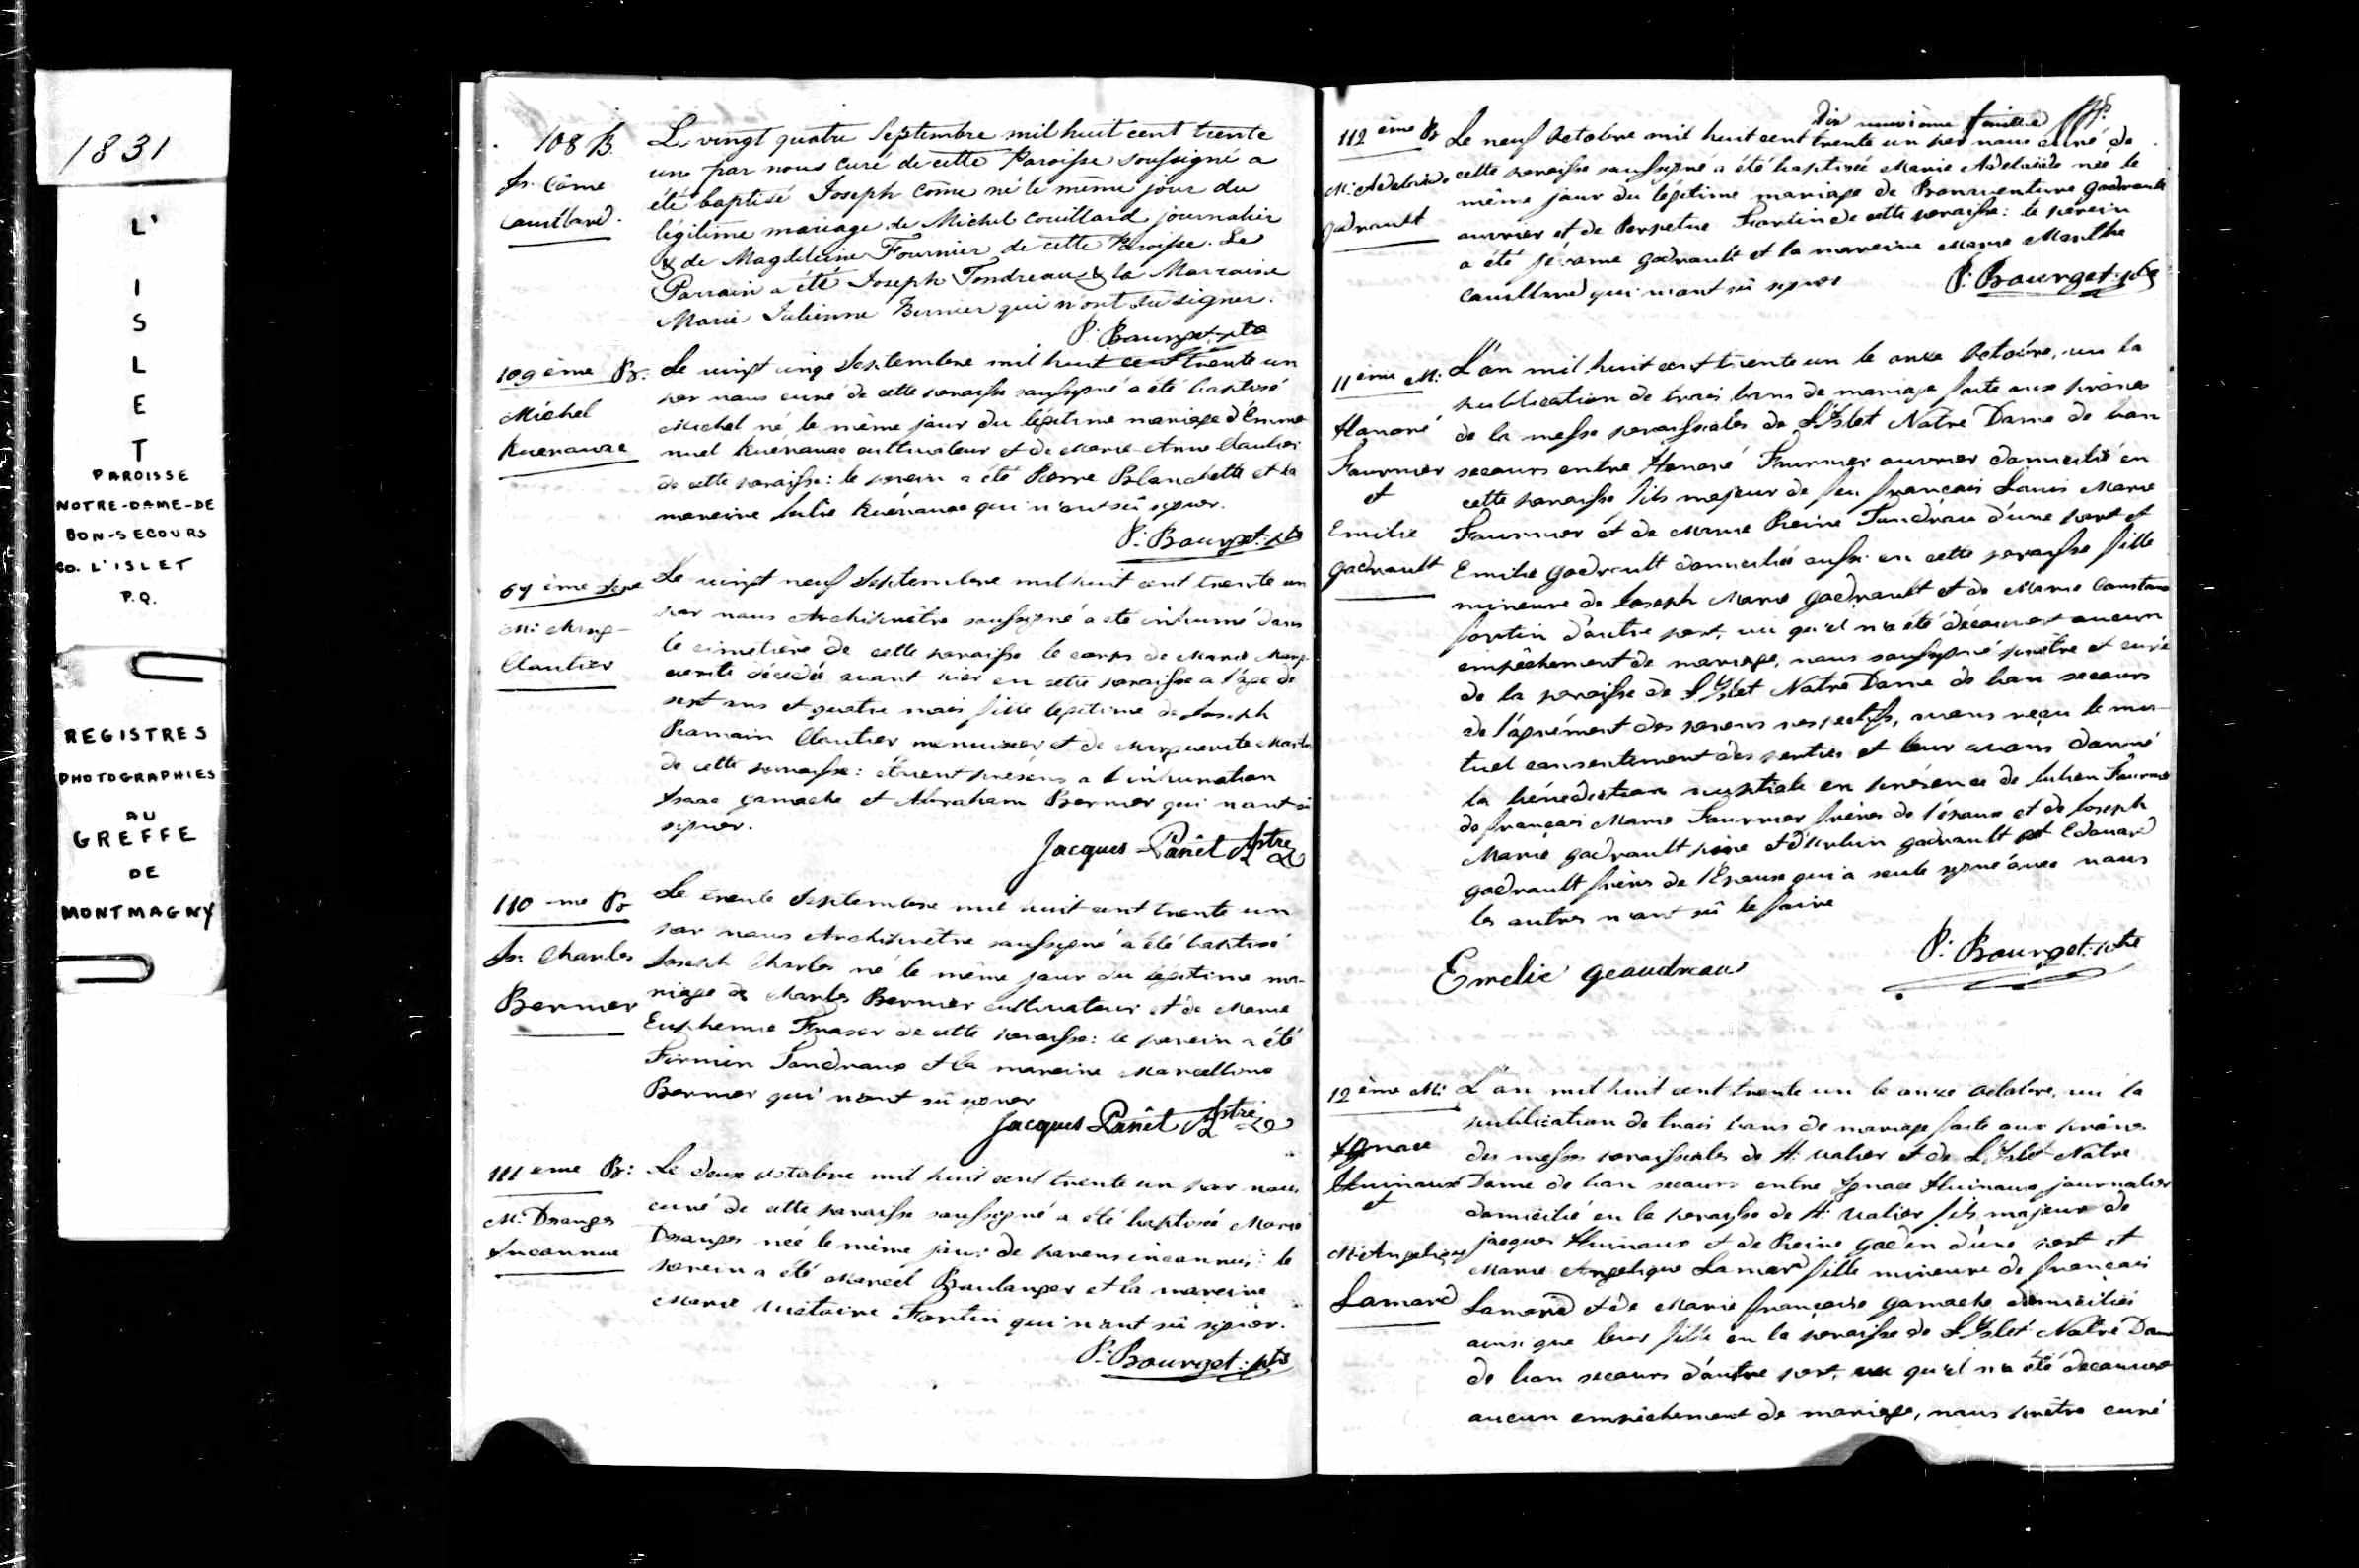 1831
L'
I
S
L
E
T
PAROISSE
NOTRE-DAME-DE
BON-SECOURS
CO. L'ISLET
P.Q.
REGISTRES
PHOTOGRAPHIES
AU
GREFFE
DE
MONTMAGNY
108 B.
Js. Côme
Couillard.
Le vingt quatre Septembre mil huit cent trente
un par nous curé de cette Paroisse soussigné a
été baptisé Joseph Côme né le même jour du
légitime mariage de Michel Couillard journalier
& de Magdeleine Fournier de cette Paroisse. Le
Parrain a été Joseph Tondreau & la Marraine
Marie Julienne Bernier qui n'ont su signer.
P. Bourget ptre
109ème B:
Michel
Le vingt cinq Septembre mil huit cent trente un
par nous curé de cette paroisse soussigné a été baptisé
Michel né le même jour du légitime mariage d'Emma
nuel cultivateur et de Marie Anne Cloutier
de cette paroisse: le parein a été Pierre Blanchette et la
mareine Julie qui n'ont sû signer.
P. Bourget: ptre
67ème Sepe
M: Marg-
Cloutier
Le vingt neuf Septembre mil huit cent trente un
par nous Archiprêtre soussigné a été inhumé dans
le cimetière de cette paroisse le corps de Marie Marg-
uerite décédée avant hier en cette paroisse a l'age de
sept ans et quatre mois fille légitime de Joseph
Romain Cloutier menuisier et de Marguerite
de cette paroisse: étoient présens a l'inhumation
Isaac Gamache et Abraham Bernier qui n'ont sû
signer.
Jacques Panet Aptre
110 -me B
Js. Charles
Bernier
Le trente Septembre mil huit cent trente un
par nous Archiprêtre soussigné a été baptisé
Joseph Charles né le même jour du légitime ma-
riage de Charles Bernier cultivateur et de Marie
Euphemie Fraser de cette paroisse: le parein a été
Firmin Tondreau et la mareine Marcelline
Bernier qui n'ont sû signer
Jacques Panet Aptre
111 eme B:
M. Desanges
Inconnue
Le deux octobre mil huit cent trente un par nous
curé de cette paroisse soussigné a été baptisée Marie
Desanges née le même jour de parens inconnus: le
parein a été Marcel Boulanger et la mareine
Marie Victoire Fortin qui n'ont sû signer.
P. Bourget: ptre
Dix neuvième feuillet
112 ème B
M: Adelaide
Godrault
Le neuf Octobre mil huit cent trente un par nous curé de
cette paroisse soussigné a été baptisée Marie Adelaide née le
même jour du légitime mariage de Bonaventure Godrault
ouvrier et de Perpetue Fortin de cette paroisse: le parein
a été Jérome Godrault et la mareine Marie Marthe
Couillard qui n'ont sû signer
P. Bourget: ptre
11ème M:
Honoré
Fournier
et
Emilie
Godrault
L'an mil huit cent trente un le onze Octobre, vu la
publication de trois bans de mariage faite aux prônes
de la messe paroissiales de L'Islet Notre Dame de bon
secours entre Honoré Fournier ouvrier domicilié en
cette paroisse fils majeur de feu françois Louis Marie
Fournier et de Marie Reine Tondreau d'une part et
Emilie Godrault domiciliée aussi en cette paroisse fille
mineure de Joseph Marie Godrault et de Marie Constance
fortin d'autre part, vu qu'il n'a été découvert aucun
empêchement de mariage, nous soussigné prêtre et curé
de la paroisse de L'Islet Notre Dame de bon secours
de l'agrément des parens respectifs, avons reçu le mu-
tuel consentement des parties et leur avons donné
la bénédiction nuptiale en présence de Julien Fournier
de françois Marie Fournier frères de l'époux et de Joseph
Marie Godrault père et d' Godrault et Edouard
Godrault frères de l'Epouse qui a seule signé avec nous
les autres n'ont sû le faire
P. Bourget: ptre
Emelie Geaudreau
12ème M:
Ignace
et
M: Angelique
Lamard
L'an mil huit cent trente un le onze octobre, vu la
publication de trois bans de mariage faite aux prônes
des messes paroissiales de St: Valier et de L'Islet Notre
Dame de bon secours entre Ignace journalier
domicilié en la paroisse de St: Valier fils majeur de
jacques et de Reine d'une part et
Marie Angelique Lamard fille mineure de françois
Lamard et de Marie françoise Gamache domiciliés
ainsi que leur fille en la paroisse de L'Islet Notre Dame
de bon secours d'autre part, vu qu'il n'a été découvert
aucun empêchement de mariage, nous prêtre curé